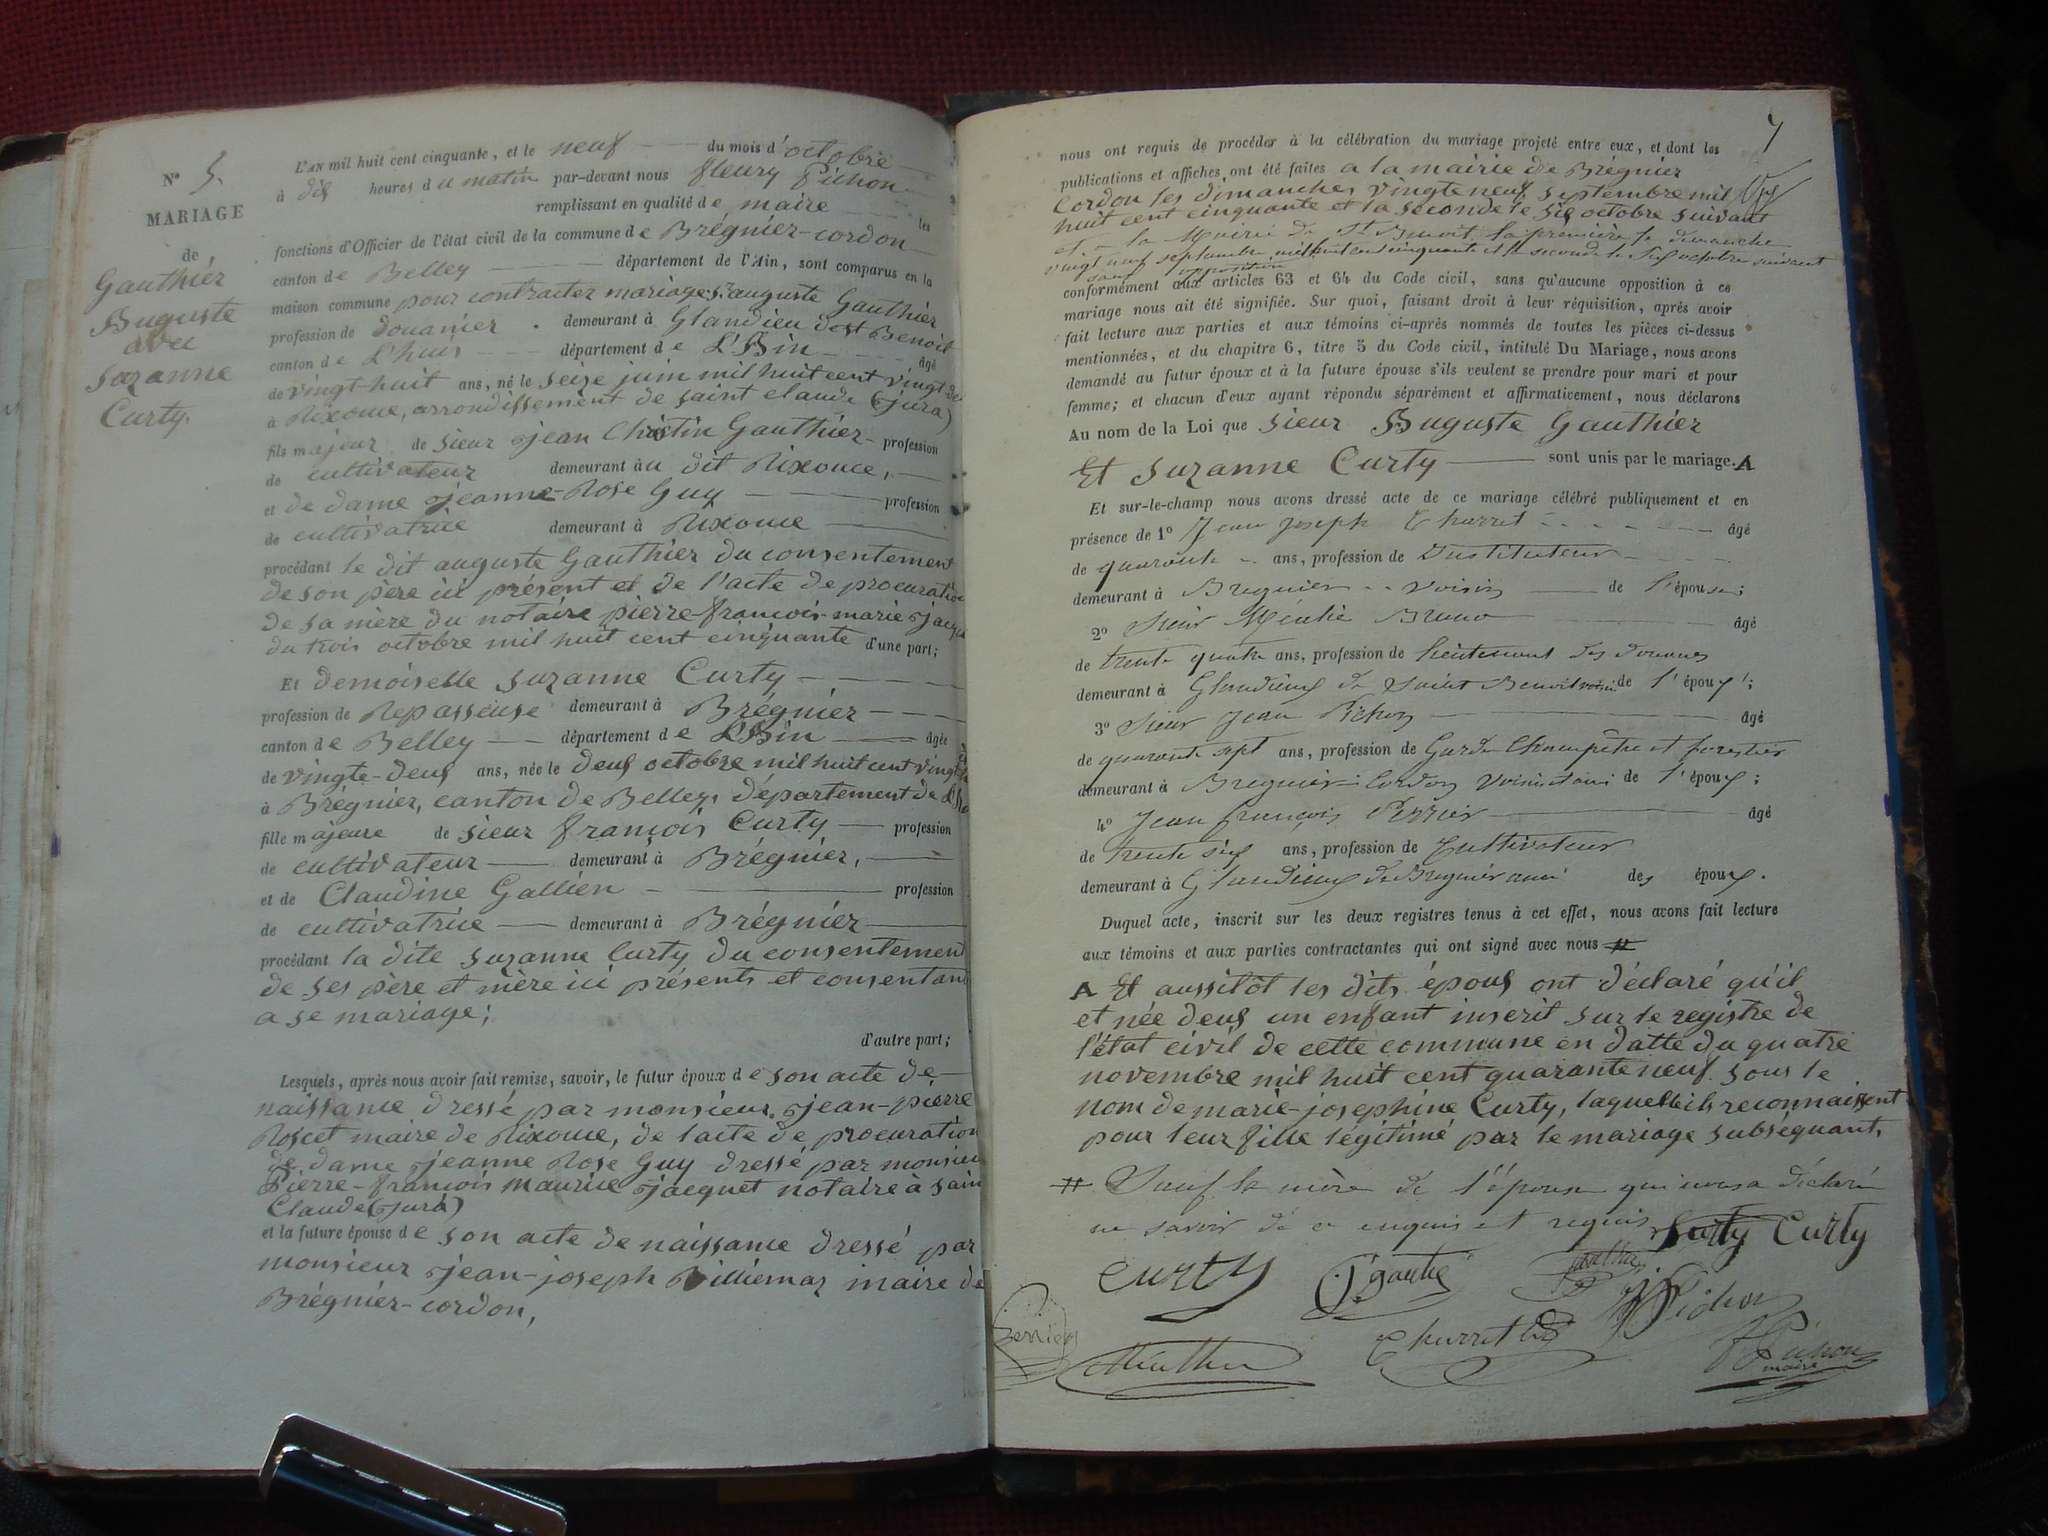 N° 5.
MARIAGE
de
Gauthier
Auguste
avec
Suzanne
Curty.
L'AN mil huit cent cinquante, et le neuf du mois d'octobre
à dix heures du matin par-devant nous fleury Pichon
remplissant en qualité de maire les
fonctions d'Officier de l'état civil de la commune de Brégnier-cordon
canton de Belley département de l'Ain, sont comparus en la
maison commune pour contracter mariage Sr auguste Gauthier
profession de douanier demeurant à Glandieu de St Benoit
canton de L'huis département de L'Ain âgé
de vingt-huit ans, né le seize juin mil huit cent vingt-deux
à Rixouse, arrondissement de saint claude (jura)
fils majeur de sieur jean Christin Gauthier profession
de cultivateur demeurant au dit Rixouse,
et de dame jeanne-Rose Guy profession
de cultivatrice demeurant à Rixouse
procédant le dit auguste Gauthier du consentement
de son père ici présent et de l'acte de procuration
de sa mère du notaire pierre-françois-marie
du trois octobre mil huit cent cinquante d'une part;
Et demoiselle Suzanne Curty
profession de Repasseuse demeurant à Brégnier
canton de Belley département de L'Ain âgée
de vingte-deux ans, née le deux octobre mil huit cent vingt
à Brégnier, canton de Belley, département de
fille majeure de sieur françois Curty profession
de cultivateur demeurant à Brégnier,
et de Claudine Gallien profession
de cultivatrice demeurant à Brégnier
procédant la dite Suzanne Curty du consentement
de ses père et mère ici présents et consentant
a se mariage;
d'autre part;
Lesquels, après nous avoir fait remise, savoir, le futur époux de son acte de
naissance dressé par monsieur jean-pierre
maire de Rixouse, de l'acte de procuration
de dame jeanne Rose Guy dressé par monsieur
Pierre-françois maurice jacquet notaire à saint
Claude (jura)
et la future épouse de son acte de naissance dressé par
monsieur jean-joseph Billiemaz maire de
Brégnier-cordon,
7
nous ont requis de procéder à la célébration du mariage projeté entre eux, et dont les
publications et affiches ont été faites a la mairie de Brégnier
Cordon les dimanches vingte neuf septembre mil
huit cent cinquante et la seconde le six octobre suivant
et à la Mairie de St Benoit la première le dimanche
vingt neuf septembre mil huit cent cinquante et la seconde le six octobre suivant
sans opposition
conformément aux articles 63 et 64 du Code civil, sans qu'aucune opposition à ce
mariage nous ait été signifiée. Sur quoi, faisant droit à leur réquisition, après avoir
fait lecture aux parties et aux témoins ci-après nommés de toutes les pièces ci-dessus
mentionnées, et du chapitre 6, titre 5 du Code civil, intitulé Du Mariage, nous avons
demandé au futur époux et à la future épouse s'ils veulent se prendre pour mari et pour
femme; et chacun d'eux ayant répondu séparément et affirmativement, nous déclarons
Au nom de la Loi que sieur Auguste Gauthier
Et Suzanne Curty sont unis par le mariage. A
Et sur-le-champ nous avons dressé acte de ce mariage célébré publiquement et en
présence de 1° Jean Joseph Charret âgé
de quarante ans, profession de Instituteur
demeurant à Bregnier voisin de l'épouse;
2° Sieur Bruno âgé
de trente quatre ans, profession de lieutenant des douanes
demeurant à Glandieux de Saint Benoit voisin de l'époux;
3° Sieur Jean Pichon âgé
de quarante sept ans, profession de Garde Champêtre et forestier
demeurant à Bregnier-Cordon de l'époux;
4° Jean françois Perrier âgé
de trente six ans, profession de Cultivateur
demeurant à Glandieux de Bregnier ami des époux.
Duquel acte, inscrit sur les deux registres tenus à cet effet, nous avons fait lecture
aux témoins et aux parties contractantes qui ont signé avec nous #
A Et aussitôt les dits époux ont déclaré qu'il
et née deux un enfant inscrit sur le registre de
l'état civil de cette commune en datte du quatre
novembre mil huit cent quarante neuf sous le
nom de marie-josephine Curty, laquelle ils reconnaissent
pour leur fille légitimé par le mariage subsequant.
# Sauf la mère de l'épouse qui nous a déclaré
ne savoir de ce enquis et requis Curty Curty
Curty
Pichon
Charret
F Pichon
maire